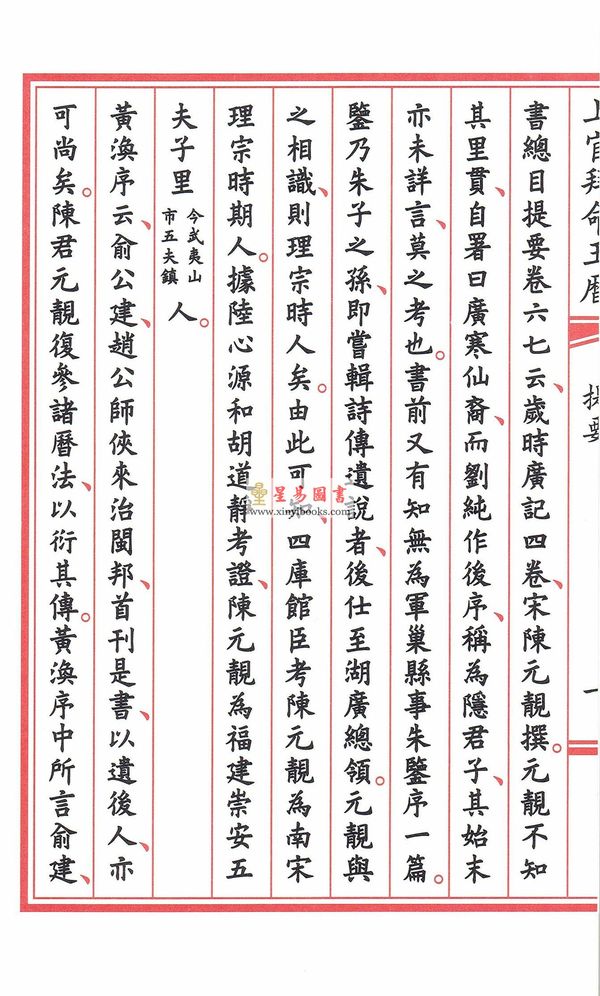 上官拜命玉曆
提要
一
書總目提要卷六七云、歲時廣記四卷、宋陳元靚撰。元靚不知
其里貫、自署曰廣寒仙裔、而劉純作後序、稱為隱君子、其始末
亦未詳言、莫之考也。書前又有知無為軍巢縣事朱鑒序一篇。
鑒乃朱子之孫、即嘗輯詩傳遺說者、後仕至湖廣總領。元靚與
之相識、則理宗時人矣。由此可、四庫館臣考陳元靚為南宋
理宗時期人。據陸心源和胡道靜考證、陳元靚為福建崇安五
夫子里
今武夷山
市五夫鎮
人。
黃渙序云、俞公建、趙公師俠來治閩邦、首刊是書、以遺後人、亦
可尚矣。陳君元靚復參諸曆法、以衍其傳。黃渙序中所言俞建、
星易圖書
www.xinyibooks.com